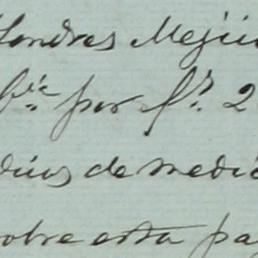 Londres Mejii
por fs. 2
dius de medi
sobre esta pa